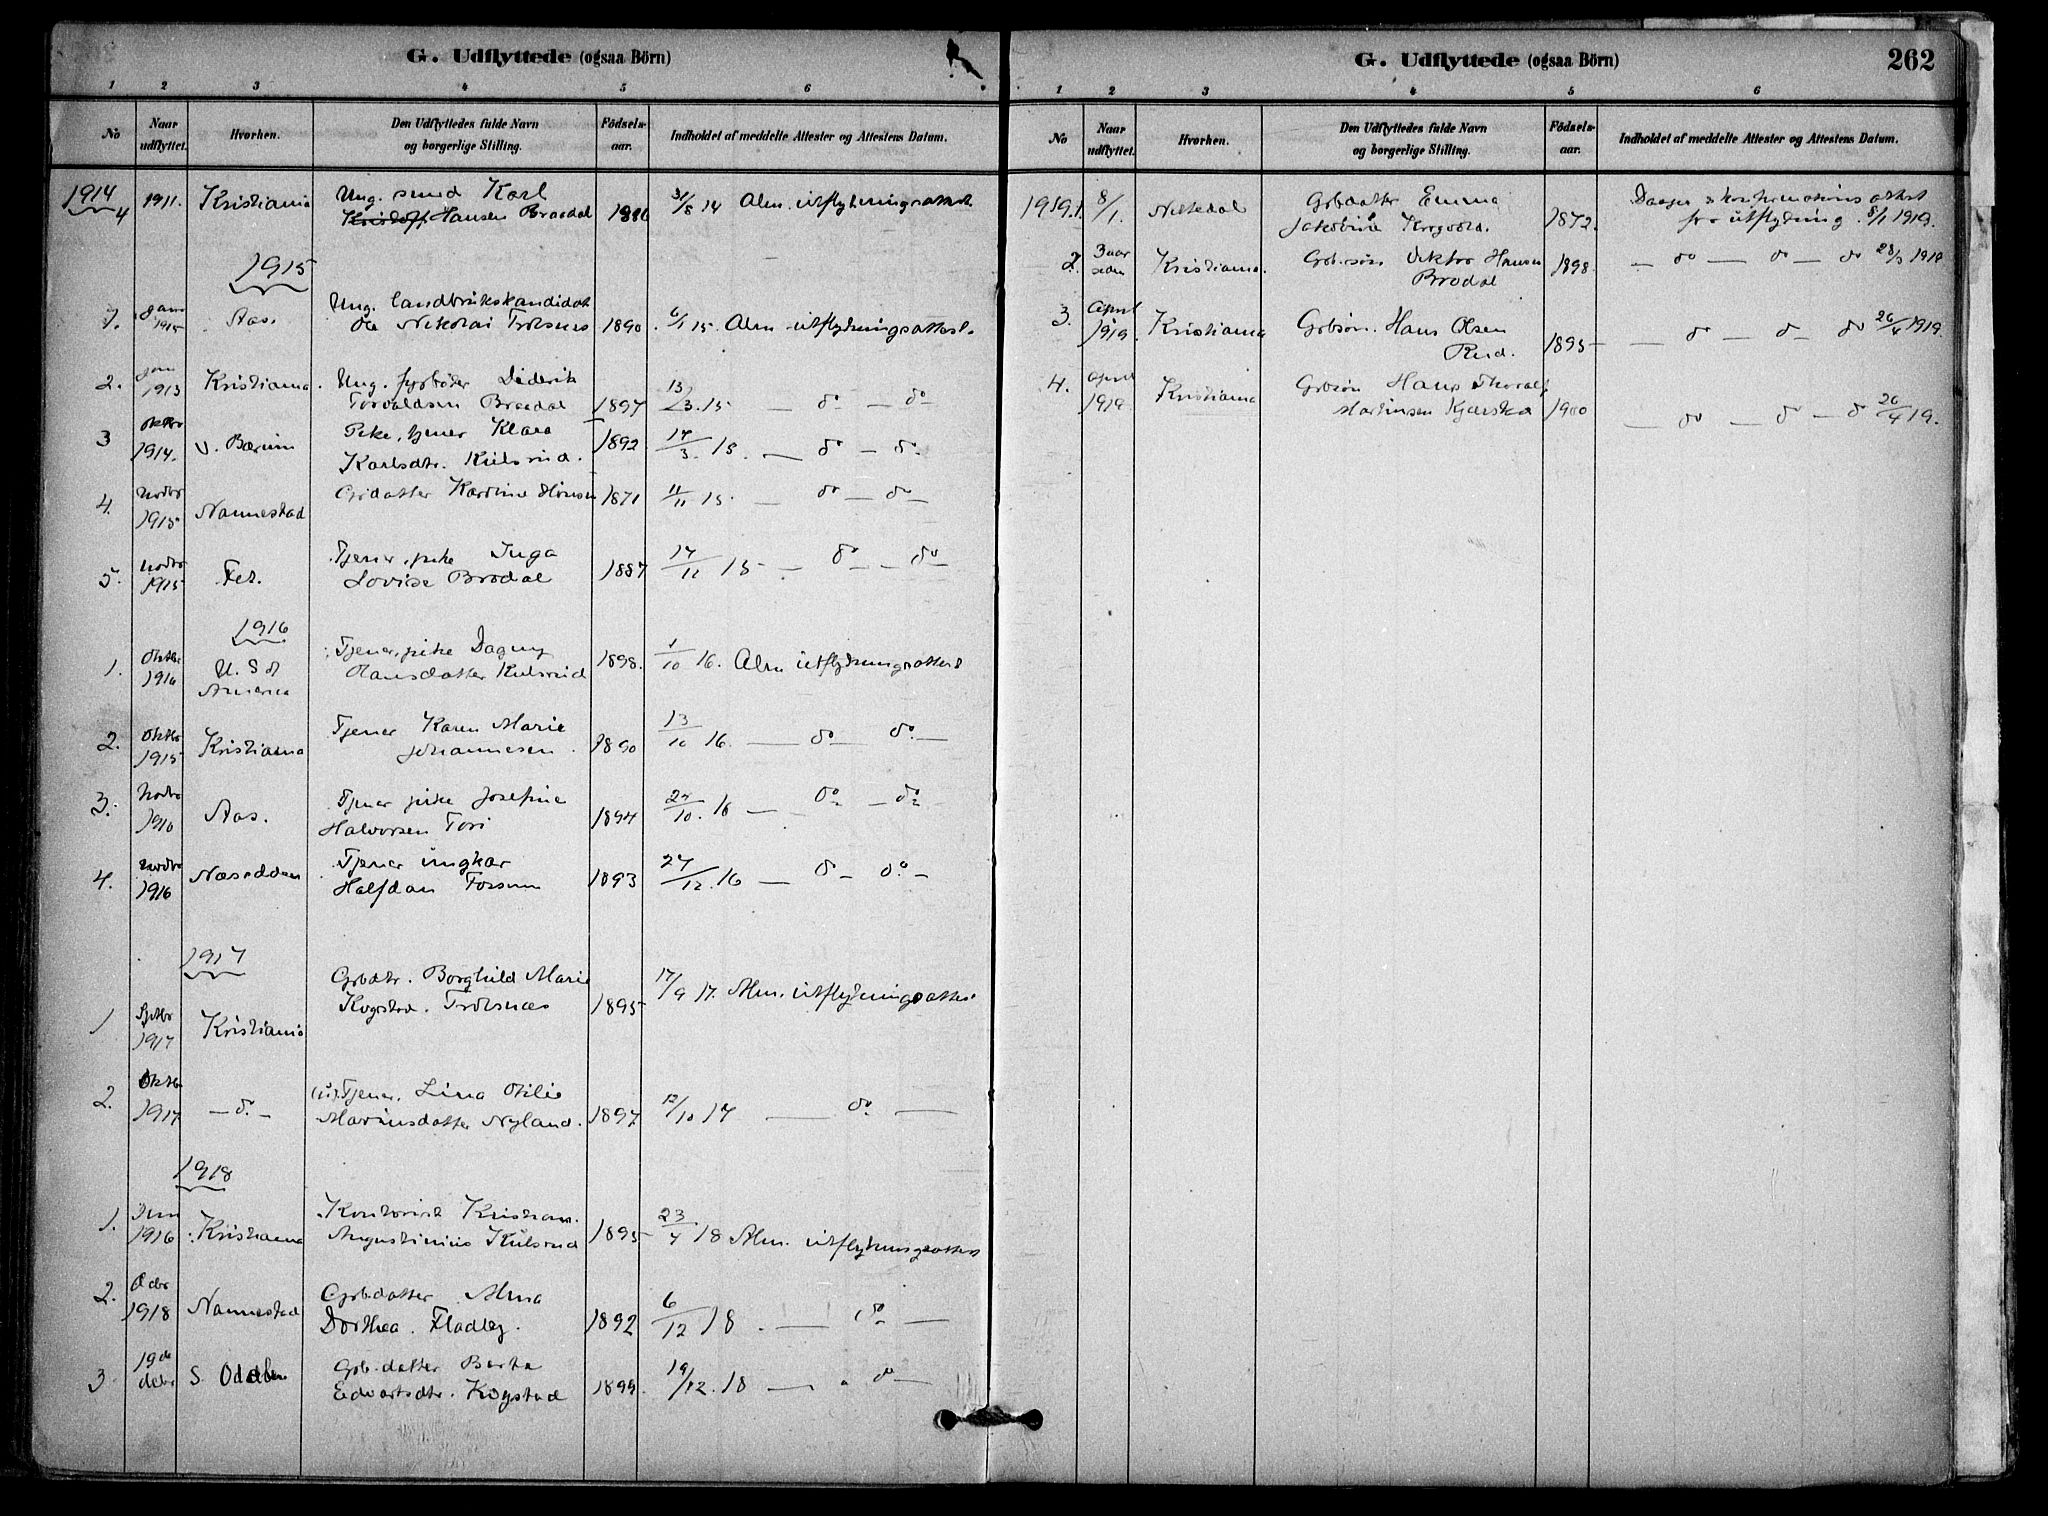 G. Udflyttede (ogsaa Börn)
1 2 3 4 5 6
No
Naar udflyttet.
Hvorhen.
Den Udflyttedes fulde Navn
og borgerlige Stilling.
Födsels-
aar.
Indholdet af meddelte Attester og Attestens Datum.
1914
4 1911. Kristiania Ung. smed Karl
Hansen Brodal 31/8 14 Alm. utflytningsattest
1915
Jan 1915 Aas. Ung. landbrukskandidat
Ole Nikolai Tolsnes 1890 6/1 15. Alm. utflytningsattest.
2. Jan 1913 Kristiania. Ung. fyrböter Diderik
Torvaldsen Brodal 1897 13/3. 15 — do — do —
3 Oktbr 1914. V. Bærum Pike, tjener Klara
Karlsdtr. Kulsrud. 1892 17/3. 15. — do — do.
4. Novbr 1915 Nannestad Hansen 1871 11/11 15. — do — do —
5. Novbr 1915 Fet. Tjener, pike Inga
Lovise Brodal 1887 17/11 15 — do — do —
1916
1. Oktbr 1916 U. S of
America Tjener, pike Dagny
Hansdatter Kulsrud 1898. 1/10 16. Alm utflytningsattest
2. Oktbr 1915 Kristiania Tjener Karen Marie
Johannesen 1890 13/10 16. — do — do. —
3. Novbr 1910 Aas. Tjener pike Josefine
Halvorsen Tori 1894 27/10. 16 — do — do
4. Novbr 1916 Næsodden Tjener ungkar
Halfdan Fossum 1893 27/12. 16 — do — do. —
1917
1 Septbr 1917 Kristiania Gbdtr. Borghild Marie
Kogstad. Tolsnæs 1895 17/9 17. Alm. utflytningsattest
2. Oktbr 1917 — do. — Tjener. Lina Otilie
Marinsdatter Nyland. 1897 12/10 17 — do. —
1918
1. Juni 1916 Kristiania Kontorist Kristian
Augustinius Kulsrud 1895 23/4 18 Alm. utflytningsattest
2. Dcbr 1918 Nannestad Gbdatter Alma
Dorthea. Fladby. 1892 6/12 18. — do —
3. 19de decbr S. Odalen Gbdatter Berta
Edvartsdtr. Kogstad 1899. 19/12. 18 — do —
G. Udflyttede (ogsaa Börn)
262
1 2 3 4 5 6
No
Naar udflyttet.
Hvorhen.
Den Udflyttedes fulde Navn
og borgerlige Stilling.
Födsels-
aar.
Indholdet af meddelte Attester og Attestens Datum.
1919. 1. 8/1. Nittedal Gbdatter Emma
Jakobine Krogvold. 1872. Daaps & konfirmations attest
for utflytning. 8/1 1919.
2. 3 aar siden Kristiania. Gb.søn Viktor Hansen
Brodal 1898 — do — do — do 28/3 1919
3. April 1919. Kristiania Gbsøn. Hans Olsen
Rud. 1895 — do — do — do 26/4 1919.
4. April 1919 Kristiania Gbsøn Hans Thoralf
Martinsen Kjærstad 1900 — do — do — do 26/4 19.